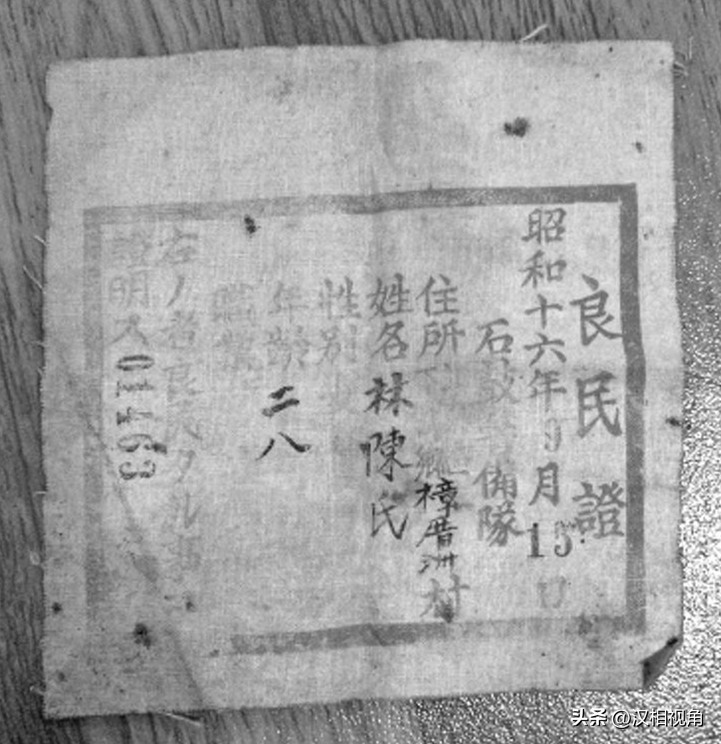 良民證
昭和十六年9月15日
石鼓警備隊
住所 鄉樟厝洲村
姓名 林陳氏
性別
年齡 二八
職業
右ノ者良民タル事ヲ
證明ス
011463
头条 @汉相视角